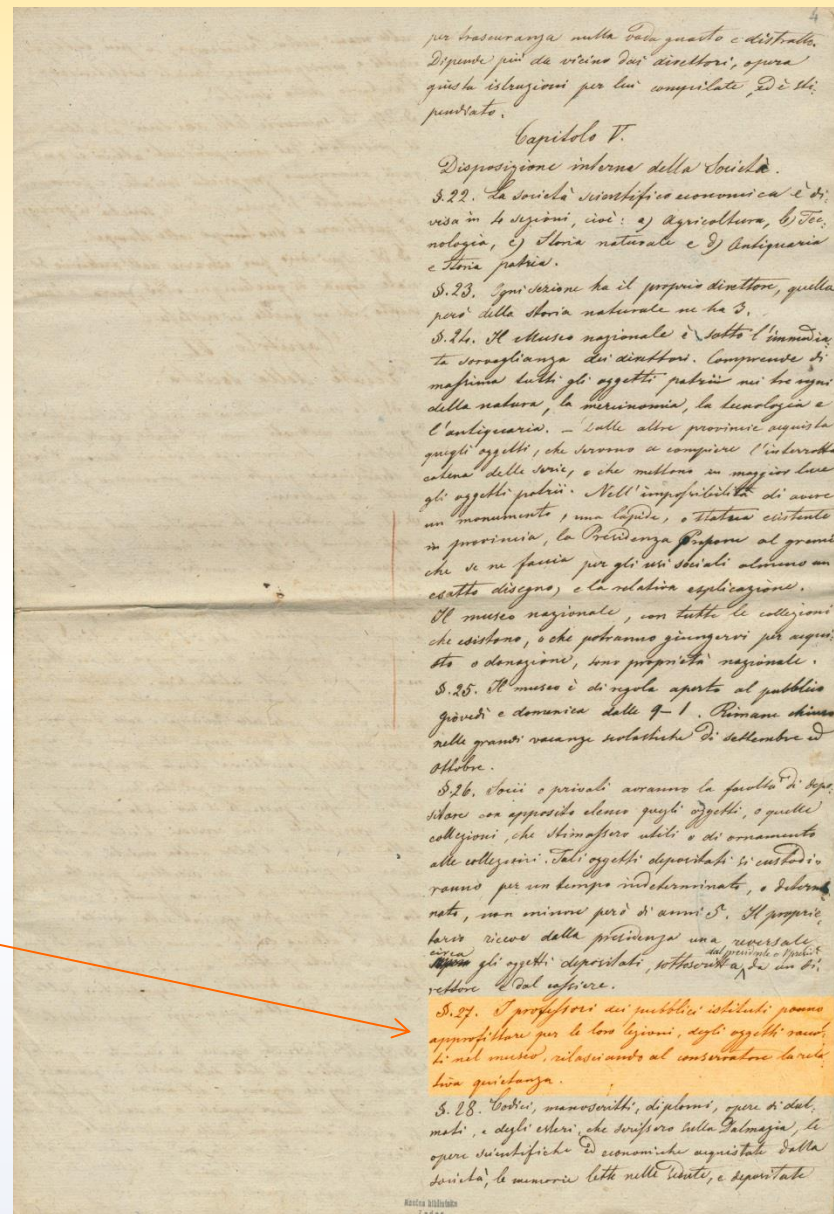 4
per trascuranza nulla vada guasto e distratto.
Dipende più da vicino dai direttori, opera
giusta istruzioni per lui compilate, ed è sti-
pendiato.
Capitolo V.
Disposizione interna della Società.
§.22. La società scientifico economica è di-
visa in 4 sezioni, cioè: a) Agricoltura, b) Tec-
nologia, c) Storia naturale e d) Antiquaria
e Storia patria.
§.23. Ogni sezione ha il proprio direttore, quella
però della storia naturale ne ha 3.
§.24. Il Museo nazionale è sotto l'immedia-
ta sorveglianza dei direttori. Comprende di
massima tutti gli oggetti patrii nei tre regni
della natura, la mercinomia, la tecnologia e
l'antiquaria. – Dalle altre provincie acquista
quegli oggetti, che servono a compiere l'interrotta
catena delle serie, o che mettono in maggior luce
gli oggetti patrii. Nell'impossibilità di avere
un monumento, una lapide, o statua esistente
in provincia, la Presidenza propone al gremio
che se ne faccia per gli usi sociali almeno un
esatto disegno, e la relativa esplicazione.
Il museo nazionale, con tutte le collezioni
che esistono, o che potranno giungervi per acqui-
sto o donazione, sono proprietà nazionale.
§.25. Il museo è di regola aperto al pubblico
giovedì e domenica dalle 9–1. Rimane chiuso
nelle grandi vacanze scolastiche di settembre ed
ottobre.
§.26. Socii e privati avranno la facoltà di depo-
sitare con apposito elenco quegli oggetti, o quelle
collezioni, che stimassero utili o di ornamento
alle collezioni. Tali oggetti depositati si custodi-
ranno per un tempo indeterminato, o determi-
nato, non minore però di anni 5. Il proprie-
tario riceve dalla presidenza una reversale
circa gli oggetti depositati, sottoscritta dal presidente o da un di-
rettore e dal cassiere.
§.27. I professori dei pubblici istituti ponno
approfittare per le loro lezioni, degli oggetti riuni-
ti nel museo, rilasciando al conservatore la rela-
tiva quietanza.
§.28. Codici, manoscritti, diplomi, opere di dal-
mati, e degli esteri, che scrissero sulla Dalmazia, le
opere scientifiche ed economiche acquistate dalla
società, le memorie lette nelle sedute, e depositate
Naučna biblioteka
Zadar